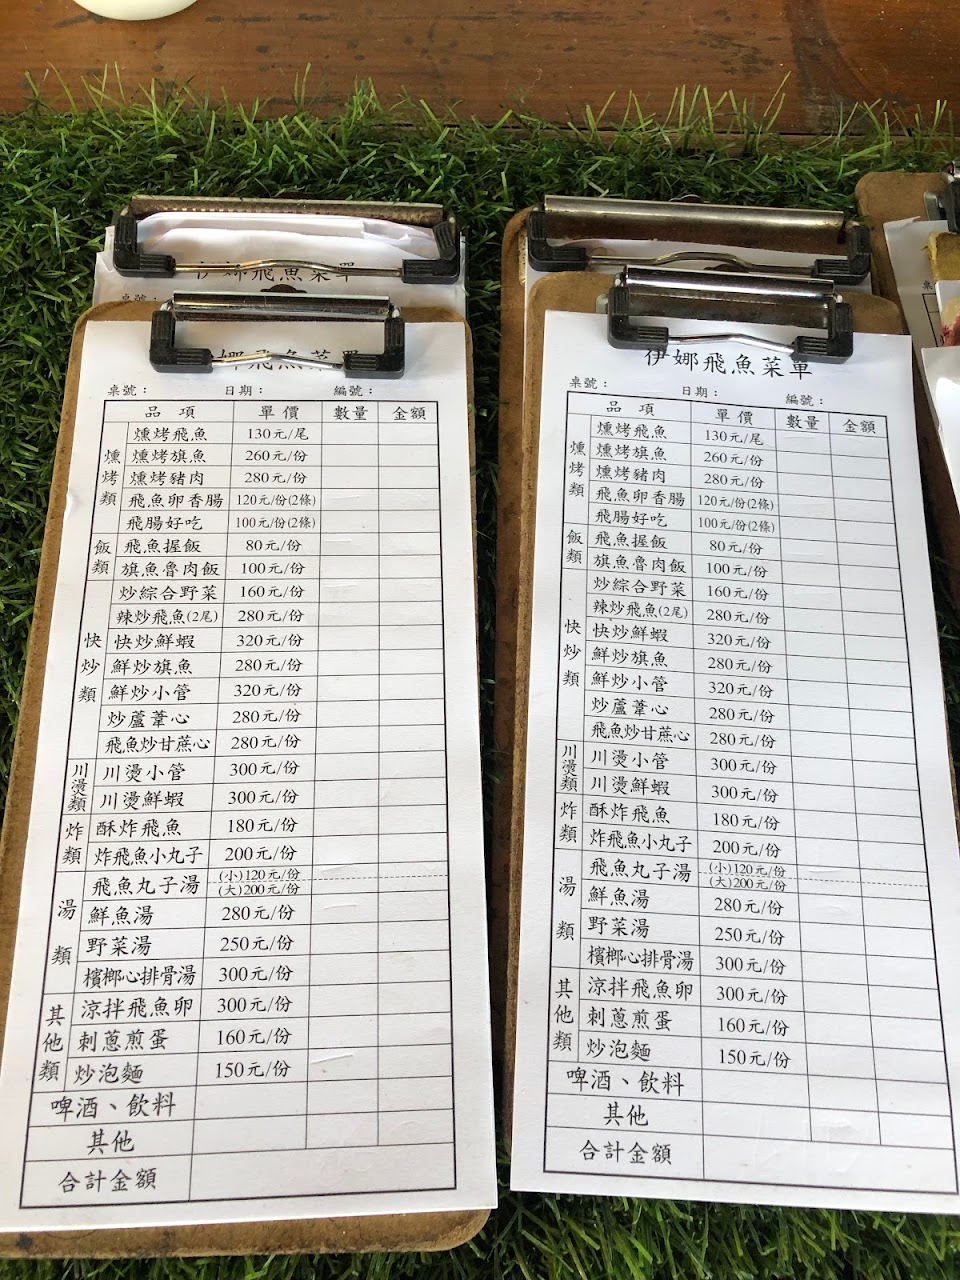 伊娜飛魚菜單
娜飛魚菜單
桌號： 日期： 編號：
品項 單價 數量 金額
燻烤類
燻烤飛魚 130元/尾
燻烤旗魚 260元/份
燻烤豬肉 280元/份
飛魚卵香腸 120元/份(2條)
飛腸好吃 100元/份(2條)
飯類
飛魚握飯 80元/份
旗魚魯肉飯 100元/份
快炒類
炒綜合野菜 160元/份
辣炒飛魚(2尾) 280元/份
快炒鮮蝦 320元/份
鮮炒旗魚 280元/份
鮮炒小管 320元/份
炒蘆葦心 280元/份
飛魚炒甘蔗心 280元/份
川燙類
川燙小管 300元/份
川燙鮮蝦 300元/份
炸類
酥炸飛魚 180元/份
炸飛魚小丸子 200元/份
湯類
飛魚丸子湯 (小)120元/份
(大)200元/份
鮮魚湯 280元/份
野菜湯 250元/份
檳榔心排骨湯 300元/份
其他類
涼拌飛魚卵 300元/份
刺蔥煎蛋 160元/份
炒泡麵 150元/份
啤酒、飲料
其他
合計金額
伊娜飛魚菜單
桌號： 日期： 編號：
品項 單價 數量 金額
燻烤類
燻烤飛魚 130元/尾
燻烤旗魚 260元/份
燻烤豬肉 280元/份
飛魚卵香腸 120元/份(2條)
飛腸好吃 100元/份(2條)
飯類
飛魚握飯 80元/份
旗魚魯肉飯 100元/份
快炒類
炒綜合野菜 160元/份
辣炒飛魚(2尾) 280元/份
快炒鮮蝦 320元/份
鮮炒旗魚 280元/份
鮮炒小管 320元/份
炒蘆葦心 280元/份
飛魚炒甘蔗心 280元/份
川燙類
川燙小管 300元/份
川燙鮮蝦 300元/份
炸類
酥炸飛魚 180元/份
炸飛魚小丸子 200元/份
湯類
飛魚丸子湯 (小)120元/份
(大)200元/份
鮮魚湯 280元/份
野菜湯 250元/份
檳榔心排骨湯 300元/份
其他類
涼拌飛魚卵 300元/份
刺蔥煎蛋 160元/份
炒泡麵 150元/份
啤酒、飲料
其他
合計金額